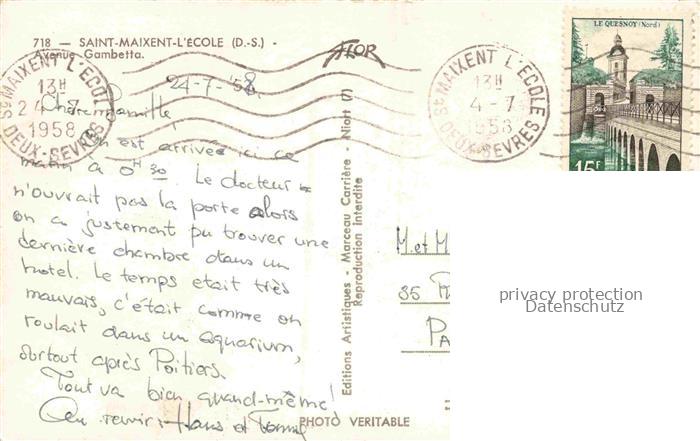 718 — SAINT-MAIXENT-L'ÉCOLE (D.-S.) -
Avenue Gambetta.
ALOR
LE QUESNOY (Nord)
15F
St MAIXENT L'ECOLE
13H
24-7
1958
DEUX-SEVRES
St MAIXENT L'ECOLE
13H
4-7
1958
DEUX-SEVRES
24-7-'58
Chère famille,
on est arrivés ici ce
matin à 0H30. Le docteur
n'ouvrait pas la porte alors
on a justement pu trouver une
dernière chambre dans un
hotel. Le temps etait très
mauvais, c'était comme on
roulait dans un aquarium,
surtout après Poitiers.
Tout va bien quand-même!
Au revoir: Hans et
Editions Artistiques - Marceau Carrière - Niort (7)
Reproduction Interdite
M. et M
35
PA
privacy protection
Datenschutz
PHOTO VERITABLE